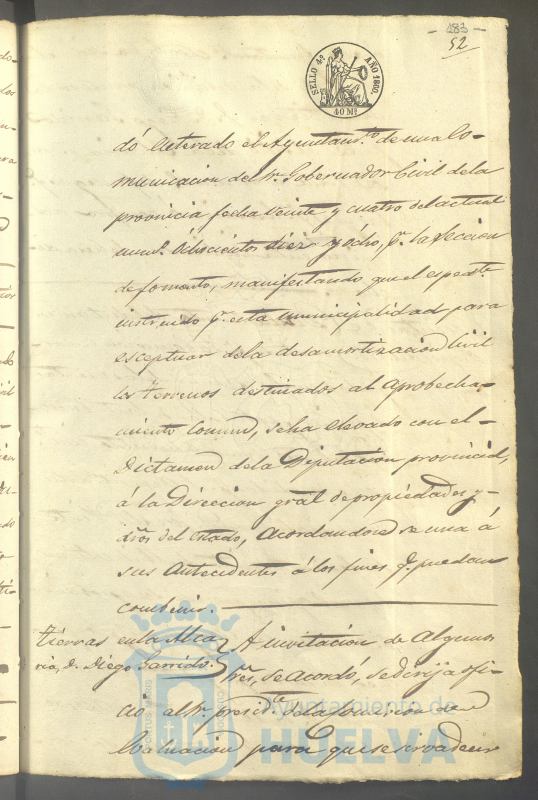 - 183 -
52
SELLO 4º AÑO 1860.
40 Ms
dó enterado el Ayuntamto. de una Co-
municacion del Sr. Gobernador Civil de la
provincia fecha veinte y cuatro del actual
numo. Ochocientos diez y ócho, pr. la Seccion
de fomento, manifestando que el espedte.
instruido pr. esta municipalidad para
esceptuar de la desamortizacion Civil
los terrenos destinados al aprobecha-
miento Comun, se ha elevado con el
Dictamen de la Diputacion provincial,
á la Direccion gral de propiedades y
dros del Estado, Acordandose se una á
sus Antecedentes á los fines qe. puedan
combenir.
tierras en la Alca
ria, d. Diego Garrido.
A invitacion de Algunos
Sres, se acordó, se dirija ofi-
cio al Sr. presidte. de la Comision de
Evaluacion para que se sirva
Ayuntamiento de
HUELVA